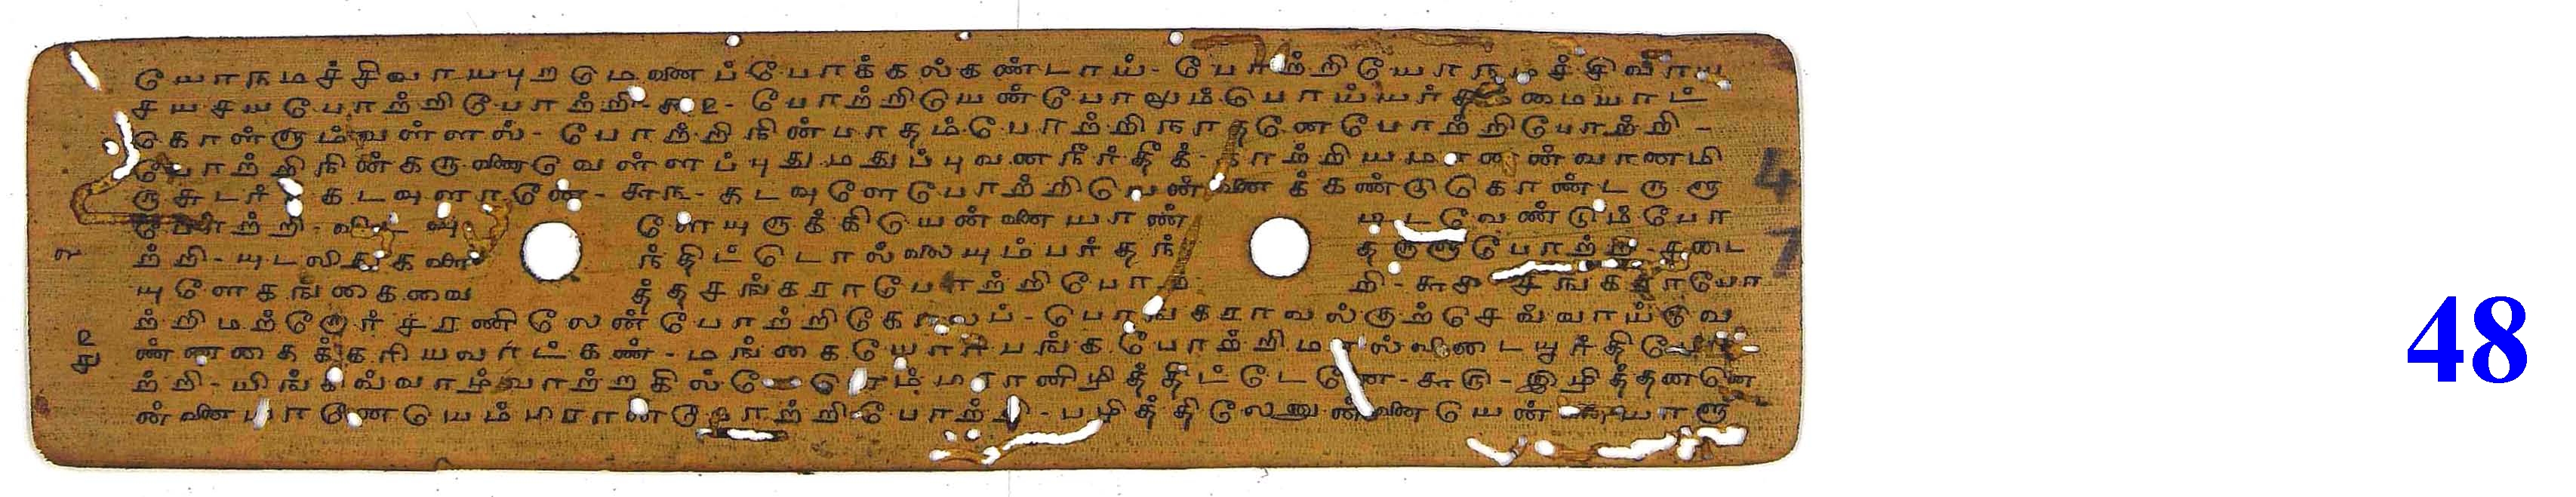 யோநமச்சிவாயபுறமெனைப்போக்கல்கண்டாய்- போற்றியோநமச்சிவாய
சயசயபோற்றிபோற்றி-௬௨- போற்றியென்போலும்பொய்யர்தம்மையாட்
கொள்ளும்வள்ளல்- போற்றிநின்பாதம்போற்றிநாதனேபோற்றிபோற்றி-
போற்றிநின்கருணைவெள்ளப்புதுமதுப்புவனநீர்தீக்-காற்றியமானன்வானமி
ருசுடர்க்கடவுளானே-௬௩-கடவுளேபோற்றியென்னைக்கண்டுகொண்டருளு
போற்றி-விடவுளேயுருக்கியென்னையாண்டிடவேண்டும்போ
ற்றி-யுடலிதுகளைந்திட்டொல்லையும்பர்தந்தருளுபோற்றி-சடை
யுளேகங்கைவைத்தசங்கராபோற்றிபோற்றி-௬௪-சங்கராபோ
ற்றிமற்றோர்சரணிலேன்போற்றிகோலப்-பொங்கராவல்குற்செவ்வாய்வெ
ண்ணகைக்கரியவாட்கண்-மங்கையோர்பங்கபோற்றிமால்விடையூர்திபோ
ற்றி-யிங்கிவ்வாழ்வாற்றகில்லேனெம்பிரானிழித்திட்டேனே-௬௫-இழித்தனனெ
ன்னையானேயெம்பிரான்போற்றிபோற்றி-பழித்திலேனுன்னையென்னையாளு
47
48